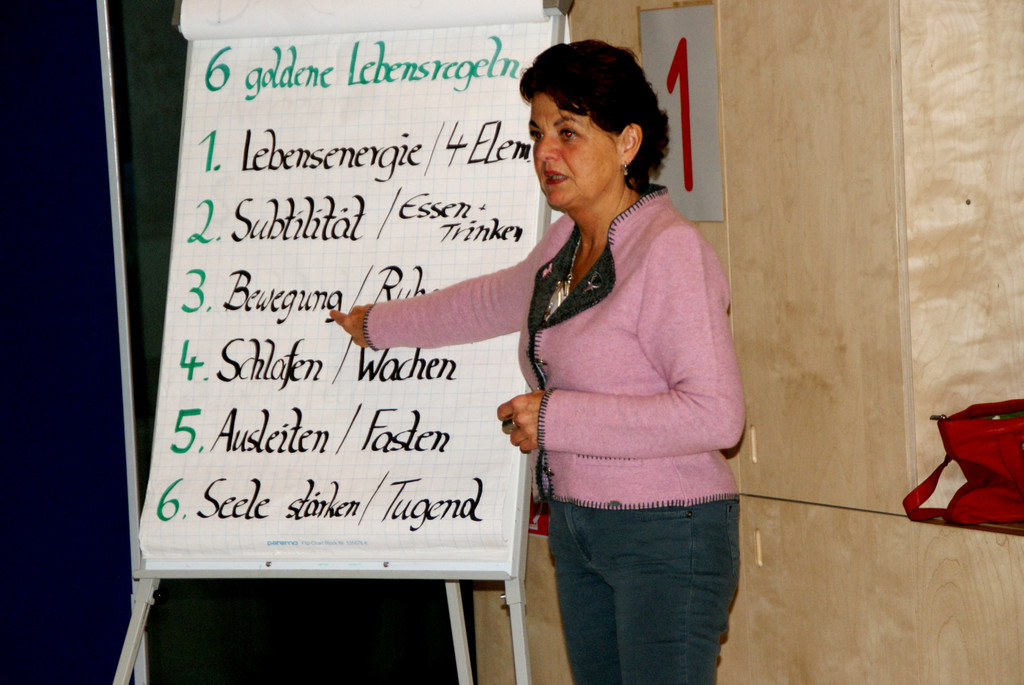 6 goldene Lebensregeln
1
1. Lebensenergie / 4 Elem
2. Subtilität / Essen +
Trinken
3. Bewegung / Ruhe
4. Schlafen / Wachen
5. Ausleiten / Fasten
6. Seele stärken / Tugend